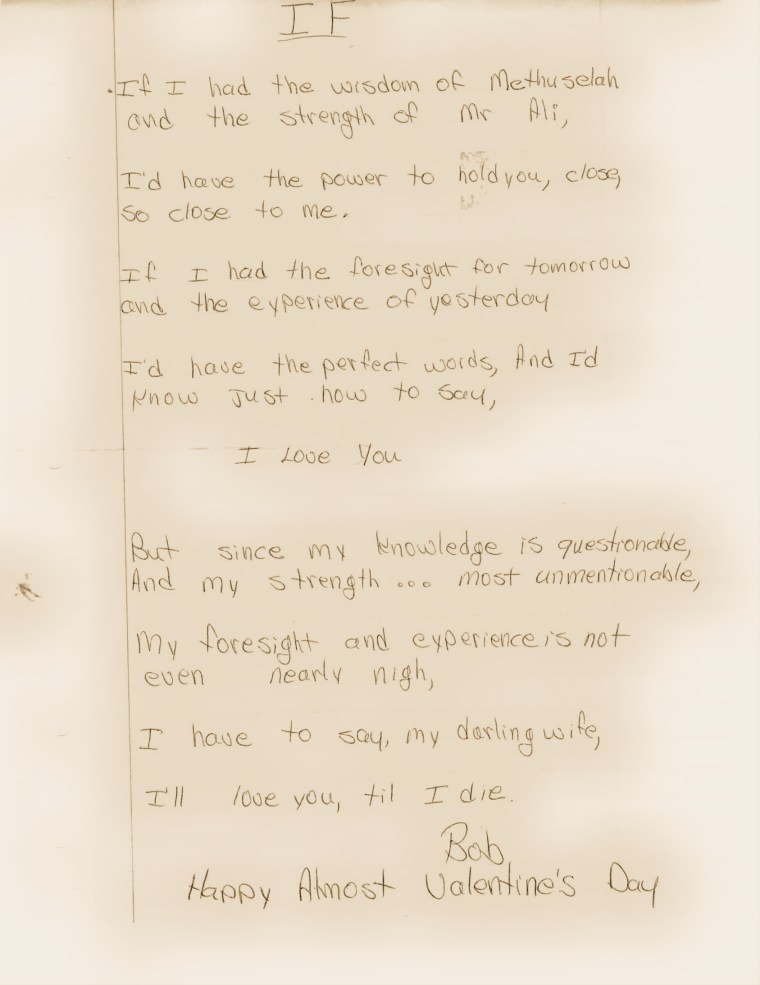 IF
If I had the wisdom of Methuselah
and the strength of Mr Ali,
I'd have the power to hold you, close,
so close to me.
If I had the foresight for tomorrow
and the experience of yesterday
I'd have the perfect words, And I'd
know just how to say,
I Love You
But since my knowledge is questionable,
And my strength ... most unmentionable,
My foresight and experience is not
even nearly nigh,
I have to say, my darling wife,
I'll love you, til I die.
Bob
Happy Almost Valentine's Day